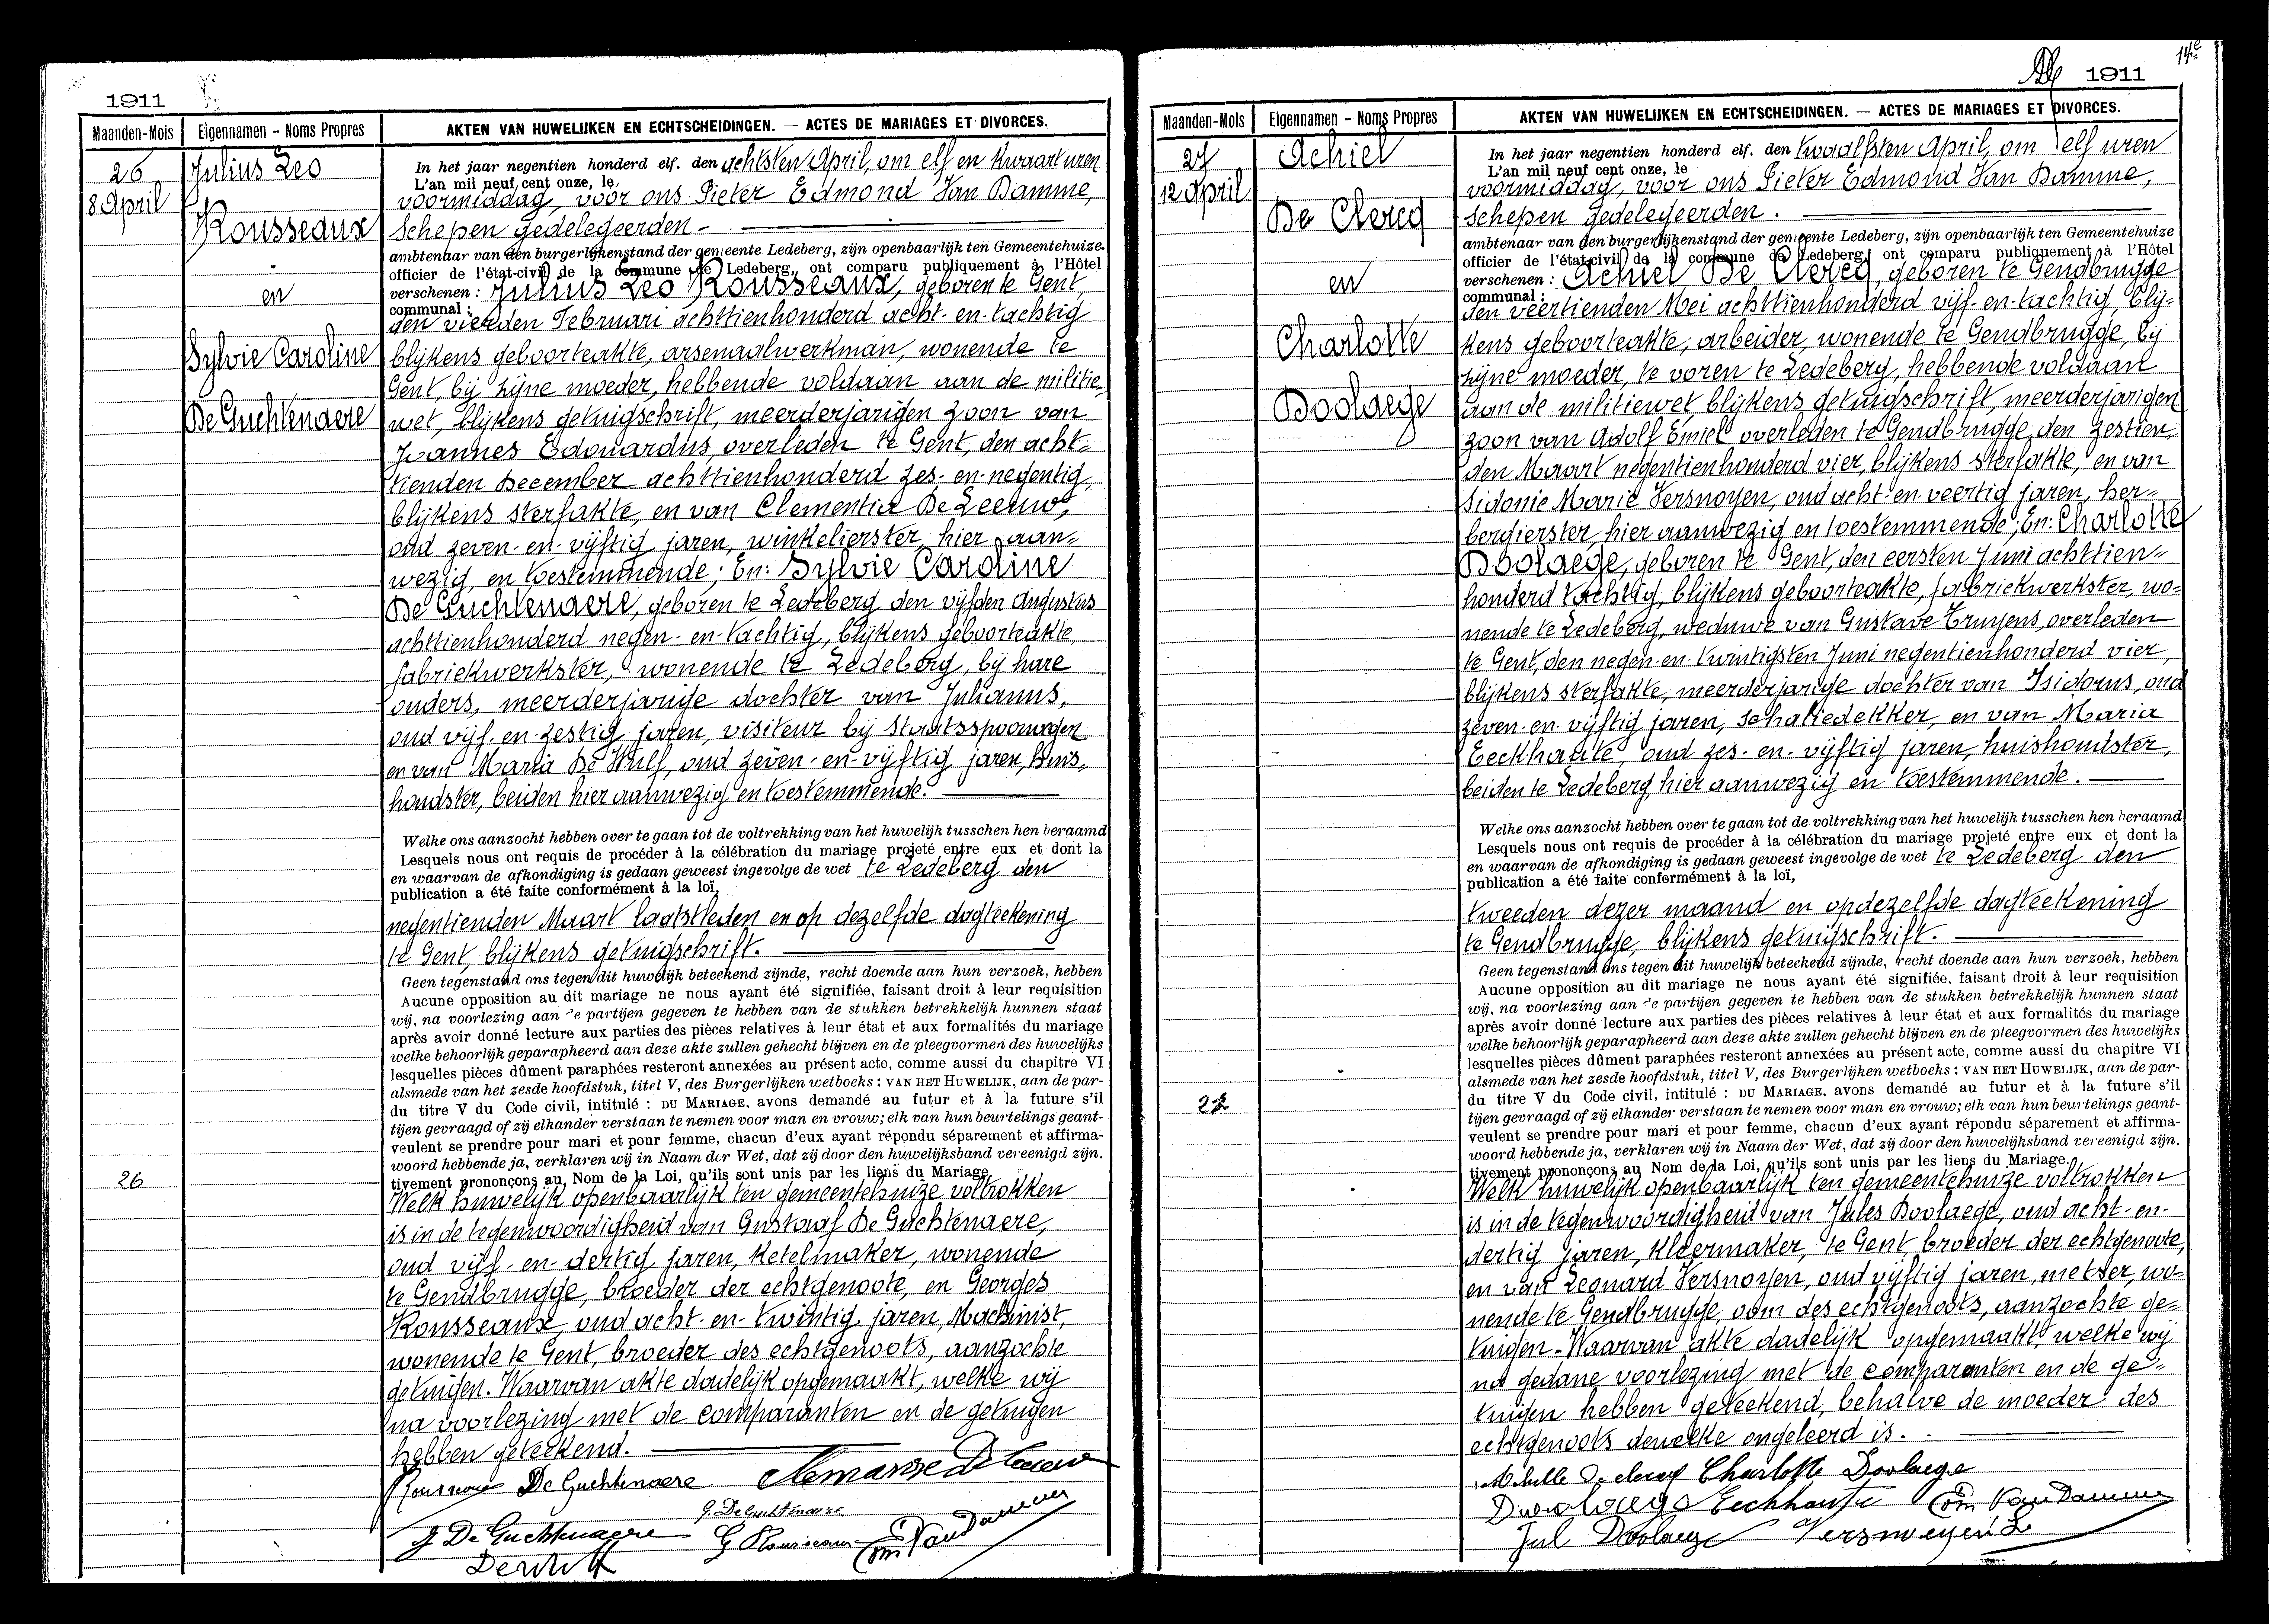 1911
Maanden-Mois Eigennamen - Noms Propres AKTEN VAN HUWELIJKEN EN ECHTSCHEIDINGEN. — ACTES DE MARIAGES ET DIVORCES.
26
8 April
Julius Leo
Rousseaux
en
Sylvie Caroline
De Guchtenaere
26
In het jaar negentien honderd elf. den achtsten April, om elf en kwaart uren
L'an mil neuf cent onze, le
voormiddag, voor ons Pieter Edmond Van Damme,
Schepen gedelegeerden -
ambtenaar van den burgerlijkenstand der gemeente Ledeberg, zijn openbaarlijk ten Gemeentehuize
officier de l'état-civil de la commune de Ledeberg, ont comparu publiquement à l'Hôtel
verschenen : Julius Leo Rousseaux, geboren te Gent,
communal :
den vierden Februari achttienhonderd acht-en-tachtig
blijkens geboorteakte, arsenaalwerkman, wonende te
Gent, bij zijne moeder, hebbende voldaan aan de militie,
wet, blijkens getuigschrift, meerderjarigen zoon van
Joannes Edouardus, overleden te Gent, den acht=
tienden December achttienhonderd zes-en-negentig,
blijkens sterfakte, en van Clementia De Leeuw,
oud zeven-en-vijftig jaren, winkelierster, hier aan=
wezig en toestemmende; En: Sylvie Caroline
De Guchtenaere, geboren te Ledeberg den vijfden Augustus
achttienhonderd negen-en-tachtig, blijkens geboorteakte,
fabriekwerkster, wonende te Ledeberg, bij hare
ouders, meerderjarige dochter van Julianus,
oud vijf-en-zestig jaren, visiteur bij Staatsspoorwegen
en van Maria De Wulf, oud zeven-en-vijftig jaren, huis,
houdster, beiden hier aanwezig en toestemmende.
Welke ons aanzocht hebben over te gaan tot de voltrekking van het huwelijk tusschen hen beraamd
Lesquels nous ont requis de procéder à la célébration du mariage projeté entre eux et dont la
en waarvan de afkondiging is gedaan geweest ingevolge de wet te Ledeberg den
publication a été faite conformément à la loï,
negentienden Maart laatstleden en op dezelfde dagteekening
te Gent, blijkens getuigschrift.
Geen tegenstand ons tegen dit huwelijk beteekend zijnde, recht doende aan hun verzoek, hebben
Aucune opposition au dit mariage ne nous ayant été signifiée, faisant droit à leur requisition
wij, na voorlezing aan de partijen gegeven te hebben van de stukken betrekkelijk hunnen staat
après avoir donné lecture aux parties des pièces relatives à leur état et aux formalités du mariage
welke behoorlijk geparapheerd aan deze akte zullen gehecht blijven en de pleegvormen des huwelijks
lesquelles pièces dûment paraphées resteront annexées au présent acte, comme aussi du chapitre VI
alsmede van het zesde hoofdstuk, titel V, des Burgerlijken wetboeks : VAN HET HUWELIJK, aan de par-
du titre V du Code civil, intitulé : DU MARIAGE, avons demandé au futur et à la future s'il
tijen gevraagd of zij elkander verstaan te nemen voor man en vrouw; elk van hun beurtelings geant-
veulent se prendre pour mari et pour femme, chacun d'eux ayant répondu séparement et affirma-
woord hebbende ja, verklaren wij in Naam der Wet, dat zij door den huwelijksband vereenigd zijn.
tivement prononçons au Nom de la Loi, qu'ils sont unis par les liens du Mariage.
Welk huwelijk openbaarlijk ten gemeentehuize voltrokken
is in de tegenwoordigheid van Gustaaf De Guchtenaere,
oud vijf-en-dertig jaren, ketelmaker, wonende
te Gendbrugge, broeder der echtgenoote, en Georges
Rousseaux, oud acht-en-twintig jaren, Machinist,
wonende te Gent, broeder des echtgenoots, aanzochte
getuigen. Waarvan akte dadelijk opgemaakt, welke wij
na voorlezing met de comparanten en de getuigen
hebben geteekend.
Rousseaux De Guchtenaere Clemance De Leeuw
G. De Guchtenaere
J De Guchtenaere G Rousseaux Edm Van Damme
Dewulf
14e
1911
Maanden-Mois Eigennamen - Noms Propres AKTEN VAN HUWELIJKEN EN ECHTSCHEIDINGEN. — ACTES DE MARIAGES ET DIVORCES.
27
12 April
Achiel
De Clercq
en
Charlotte
Doolaege
27
In het jaar negentien honderd elf. den twaalfsten April, om elf uren
L'an mil neuf cent onze, le
voormiddag, voor ons Pieter Edmond Van Damme,
Schepen gedelegeerden.
ambtenaar van den burgerlijkenstand der gemeente Ledeberg, zijn openbaarlijk ten Gemeentehuize
officier de l'état-civil de la commune de Ledeberg, ont comparu publiquement à l'Hôtel
verschenen : Achiel De Clercq, geboren te Gendbrugge
communal :
den veertienden Mei achttienhonderd vijf-en-tachtig, blij=
kens geboorteakte, arbeider, wonende te Gendbrugge, bij
zijne moeder, te voren te Ledeberg, hebbende voldaan
aan de militiewet blijkens getuigschrift, meerderjarigen
zoon van Adolf Emiel overleden te Gendbrugge, den zestien,
den Maart negentienhonderd vier, blijkens sterfakte, en van
Sidonie Marie Versnoyen, oud acht-en-veertig jaren, her=
bergierster, hier aanwezig en toestemmende; En: Charlotte
Doolaege, geboren te Gent, den eersten Juni achttien=
honderd tachtig, blijkens geboorteakte, fabriekwerkster, wo=
nende te Ledeberg, weduwe van Gustave Truyens, overleden
te Gent, den negen-en-twintigsten Juni negentienhonderd vier,
blijkens sterfakte, meerderjarige dochter van Isidorus, oud
zeven-en-vijftig jaren, schaliedekker, en van Maria
Eeckhaute, oud zes-en-vijftig jaren, huishoudster,
beiden te Ledeberg, hier aanwezig en toestemmende.
Welke ons aanzocht hebben over te gaan tot de voltrekking van het huwelijk tusschen hen beraamd
Lesquels nous ont requis de procéder à la célébration du mariage projeté entre eux et dont la
en waarvan de afkondiging is gedaan geweest ingevolge de wet te Ledeberg den
publication a été faite conformément à la loï,
tweeden dezer maand en op dezelfde dagteekening
te Gendbrugge, blijkens getuigschrift.
Geen tegenstand ons tegen dit huwelijk beteekend zijnde, recht doende aan hun verzoek, hebben
Aucune opposition au dit mariage ne nous ayant été signifiée, faisant droit à leur requisition
wij, na voorlezing aan de partijen gegeven te hebben van de stukken betrekkelijk hunnen staat
après avoir donné lecture aux parties des pièces relatives à leur état et aux formalités du mariage
welke behoorlijk geparapheerd aan deze akte zullen gehecht blijven en de pleegvormen des huwelijks
lesquelles pièces dûment paraphées resteront annexées au présent acte, comme aussi du chapitre VI
alsmede van het zesde hoofdstuk, titel V, des Burgerlijken wetboeks : VAN HET HUWELIJK, aan de par-
du titre V du Code civil, intitulé : DU MARIAGE, avons demandé au futur et à la future s'il
tijen gevraagd of zij elkander verstaan te nemen voor man en vrouw; elk van hun beurtelings geant-
veulent se prendre pour mari et pour femme, chacun d'eux ayant répondu séparement et affirma-
woord hebbende ja, verklaren wij in Naam der Wet, dat zij door den huwelijksband vereenigd zijn.
tivement prononçons au Nom de la Loi, qu'ils sont unis par les liens du Mariage.
Welk huwelijk openbaarlijk ten gemeentehuize voltrokken
is in de tegenwoordigheid van Jules Doolaege, oud acht-en-
dertig jaren, kleermaker, te Gent broeder der echtgenoote,
en van Leonard Versnoyen, oud vijftig jaren, metser, wo=
nende te Gendbrugge, oom des echtgenoots, aanzochte ge=
tuigen. Waarvan akte dadelijk opgemaakt, welke wij
na gedane voorlezing met de comparanten en de ge=
tuigen hebben geteekend, behalve de moeder des
echtgenoots dewelke ongeleerd is.
Achille De clercq Charlotte Doolaege
Doolaege Eeckhaute Edm Van Damme
Jul Doolaege Versnoeyen L